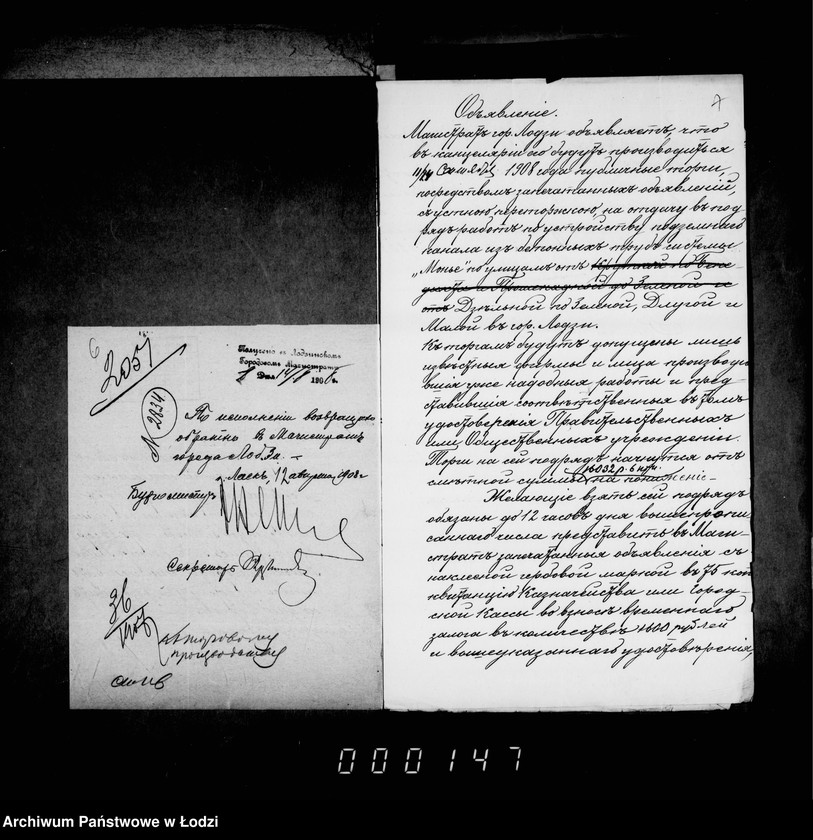 6
2051
№ 2834
Получено в Лодзинском
Городовом Магистрате
Дня 14/8 1908 г.
По исполнении возвращ
обратно в Магистрат
города Лодзи. –
Ласк, 12 августа 1908 г
Бургомистръ
Секретарь
36
къ торговому
производству
7
Объявленіе.
Магистратъ гор. Лодзи объявляетъ, что
въ канцеляріи его будутъ производиться
11/24 Сентября 1908 года публичные торги,
посредствомъ запечатанныхъ объявленій,
съ устною переторжкою, на отдачу въ под-
рядъ работъ по устройству подземнаго
канала изъ бетонныхъ трубъ системы
„Монье" по улицамъ отъ Круткой по Бене-
дикта и Променадной до Зеленой и
отъ Дзѣльной по Зеленой, Длугой и
Малой въ гор. Лодзи.
Къ торгамъ будутъ допущены лишь
извѣстныя фирмы и лица производи
вшія уже подобныя работы и пред
ставившія соотвѣтственныя въ томъ
удостовѣренія Правительственныхъ
или Общественныхъ учрежденій.
Торги на сей подрядъ начнутся отъ
смѣтной суммы 16032 р. 6 коп. на пониженіе –
Желающіе взять сей подрядъ
обязаны до 12 часовъ дня вышепропи
саннаго числа представить въ Маги-
стратъ запечатанныя объявленія съ
наклеенной гербовой маркой въ 75 коп
квитанцію Казначейства или Город-
ской Кассы во взносѣ временнаго
залога въ количествѣ 1600 рублей
и вышеуказаннаго удостовѣренія,
000147
Archiwum Państwowe w Łodzi